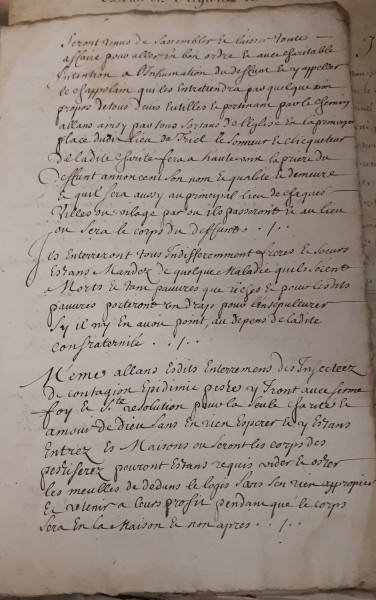 seront tenus de sassembler & laisser toute
affaire pour aller en bon ordre & avec charitable
Intention a l'Inhumation du deffunt & y appeller
le chappelain qui les entretiendra par quelque bon
propos de tous devis utilles & pertinans par le chemin
allans ainsy pas tous sortans de l'Eglise en la principalle
place dudit lieu de Triel le sonneur & clicqueteur
de ladite charité fera a haute voix la priere du
deffunt annoncera son nom & qualité & demeure
& quil fera aussy au principal lieu de chaques
villes ou vilage par ou ils passeront & au lieu
ou sera le corps du deffunt ./.
Ils Enterreront tous Indifferemment freres & sœurs
Estans Mandez de quelque Maladie quils soient
Morts & tant pauvres que riches & pour lesdits
pauvres porteront un drap pour l'ensepulturer
sy il ny en avoit point, au depens de ladite
confraternité . ./.
Meme allans Esdits Enterremens des Infectez
de contagion Epidimie peste y Iront avec ferme
foy & Ste resolution pour la seule charité &
amour de Dieu sans en rien Esperer & y Estans
Entrez Es Maisons ou seront les corps des
pestiferez pourront Estans requis vider & oster
les meubles de dedans le logis sans sen rien approprier
& retenir a leurs profit pendant que le corps
sera En la Maison & non apres . ./.